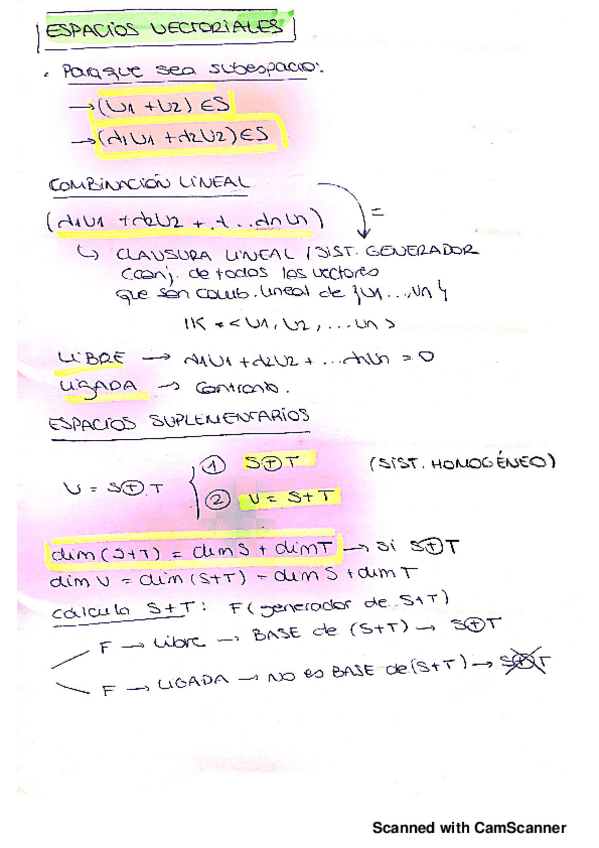 ESPACIOS VECTORIALES
• Para que sea subespacio:
→ (U1 + U2) ∈ S
→ (λ1U1 + λ2U2) ∈ S
COMBINACIÓN LINEAL
(λ1U1 + λ2U2 + ... λnUn) =
↳ CLAUSURA LINEAL / SIST. GENERADOR
(conj. de todos los vectores
que son comb. lineal de {U1 ..., Un}
IK = <U1, U2, ... Un>
LIBRE → λ1U1 + λ2U2 + ... λnUn = 0
LIGADA → Contrario.
ESPACIOS SUPLEMENTARIOS
V = S⊕T
① S⊕T (SIST. HOMOGÉNEO)
② V = S+T
dim (S+T) = dim S + dim T → Si S⊕T
dim V = dim (S+T) = dim S + dim T
cálculo S+T: F (generador de S+T)
F → Libre → BASE de (S+T) → S⊕T
F → LIGADA → NO es BASE de (S+T) → S⊕T
Scanned with CamScanner